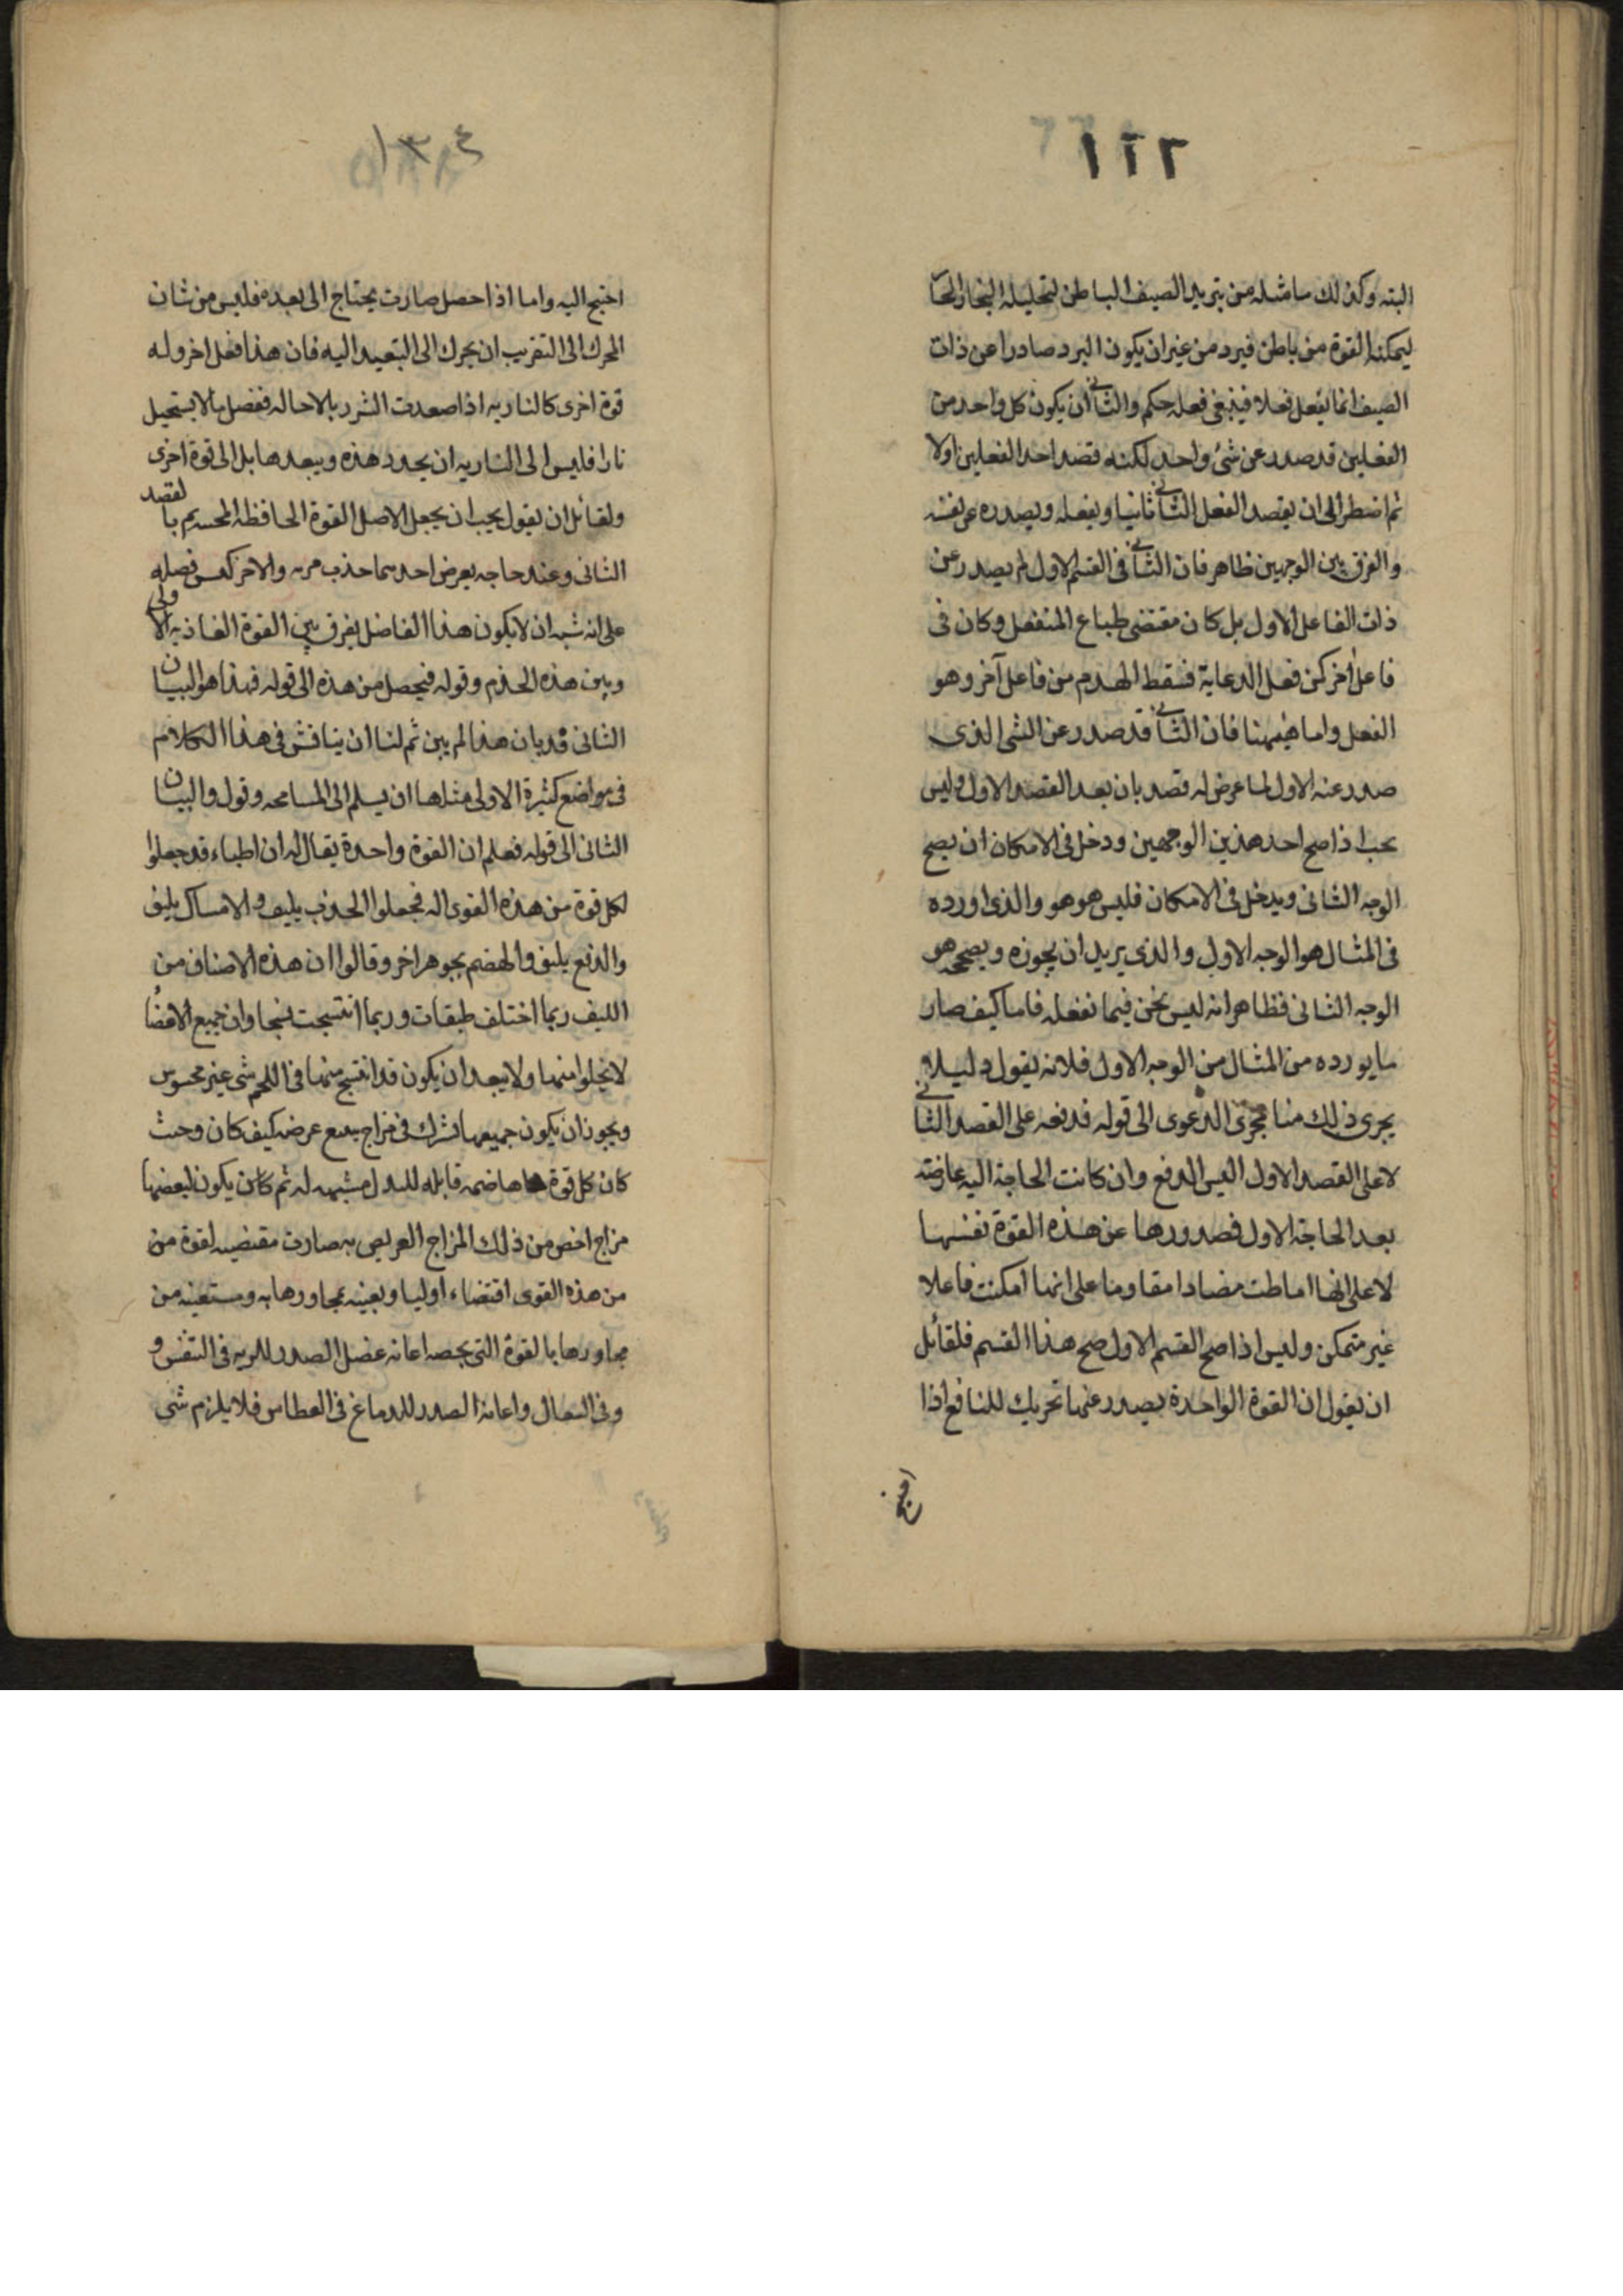 ١٢٢
البته وكذلك ما مثله من تبريد الصيف الباطن لتحليله البخار الحار
ليمكنه القوة من باطن فيرد من غير ان يكون البرد صادرا عن ذات
الصيف انما يفعل فعلا فينبغى فعله حكم والثانى ان يكون كل واحد من
الفعلين قد صدر عن شئ واحد لكنه قصد احد الفعلين اولا
ثم اضطر الى ان يقصد الفعل الثانى ثانيا ويفعله ويصدره عن نفسه
والفرق بين الوجهين ظاهر فان الثانى فى القسم الاول لم يصدر عن
ذات الفاعل الاول بل كان مقتضى طباع المنفعل وكان فى
فاعل آخر كمن فعل الدعاية فسقط الهدم من فاعل آخر وهو
الفعل واما هيهنا فان الثانى قد صدر عن الشى الذى
صدر عنه الاول لما عرض له قصد بان بعد القصد الاول وليس
يجب اذا صح احد هذين الوجهين ودخل فى الامكان ان يصح
الوجه الثانى ويدخل فى الامكان فليس هو هو والذى اورده
فى المثال هو الوجه الاول والذى يريد ان يجوزه ويصححه هو
الوجه الثانى فظاهر انه ليس نحن فيما نفعله فاما كيف صار
ما يورده من المثال من الوجه الاول فلانه يقول وليلا
يجرى ذلك منا مجرى الدعوى الى قوله فدفعه على القصد الثانى
لا على القصد الاول اليس الدفع وان كانت الحاجة اليه عارضة
بعد الحاجة الاول فصدورها عن هذه القوة نفسها
لا على انها اماطت مضادا مقاوما على انها امكنت فاعلا
غير متمكن وليس اذا صح القسم الاول صح هذا القسم فلقائل
ان يقول ان القوة الواحدة يصدر عنها تحريك للنافع اذا
١٣٤
احتيج اليه واما اذا حصل صارت يحتاج الى بعده فليس من شان
المحرك الى التقريب ان يحرك الى التبعيد اليه فان هذا فعل اخر وله
قوة اخرى كالناريه اذا صعدت الشرر بالاحاله ففصل ما لا يستحيل
نارا فليس الى الناريه ان يحدد هذه ويبعدها بل الى قوة اخرى
ولقائل ان يقول يجب ان يجعل الاصل القوة الحافظة بالقصد
الثانى وعند حاجه يعرض احدهما جذب مره والاخر فصله
على انه يشبه ان لا يكون هذا الفاضل يفرق بين القوة الغاذيه الاولى
وبين هذه الخدم وقوله فيحصل من هذه الى قوله فهذا هو البيان
الثانى قد بان هذا لم يبن ثم لنا ان يناقش فى هذا الكلام
فى مواضع كثيرة الاولى مثلها ان يسلم الى المسامحه وقول والبيان
الثانى الى قوله فعلم ان القوة واحدة يقال له ان اطباء قد جعلوا
لكل قوة من هذه القوى اله فجعلوا الجذب بليف والامساك بليف
والدفع بليف والهضم بجوهر اخر وقالوا ان هذه الاصناف من
الليف ربما اختلف طبقات وربما انتسجت نسجا وان جميع الاعضا
لا يخلوا منها ولا يبعد ان يكون قد انتسج منها فى اللحم شى غير محسوس
ويجوز ان يكون جميعها تشترك فى مزاج عرضه كيف كان وحيث
كان كل قوة هاضمه قابله للبدل مشبهه له ثم كان يكون لبعضها
مزاج اخص من ذلك المزاج العريض به صارت مقتضيه لقوة من
من هذه القوى اقتضاء اوليا ويعينه بمجاورها به ومستعينه من
مجاورها بالقوة التى يخصه اعانه عضل الصدر للريه فى التنفس و
وفى السعال واعانة الصدر للدماغ فى العطاس فلا يلزم شى